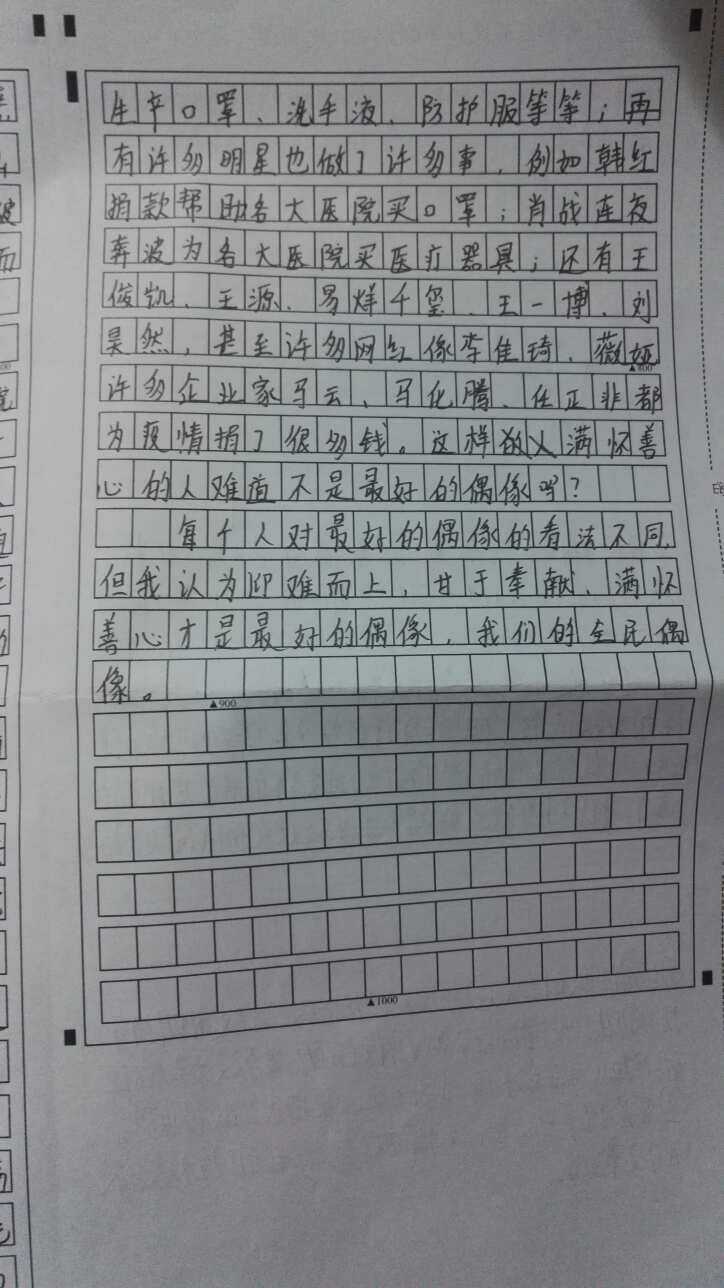 生产口罩、洗手液、防护服等等；再
有许多明星也做了许多事，例如韩红
捐款帮助各大医院买口罩；肖战连夜
奔波为各大医院买医疗器具；还有王
俊凯、王源、易烊千玺、王一博、刘
昊然，甚至许多网红像李佳琦、薇娅
▲800
许多企业家马云、马化腾、任正非都
为疫情捐了很多钱。这样的人满怀善
心的人难道不是最好的偶像吗？
每个人对最好的偶像的看法不同，
但我认为迎难而上，甘于奉献、满怀
善心才是最好的偶像，我们的全民偶
像。
▲900
▲1000